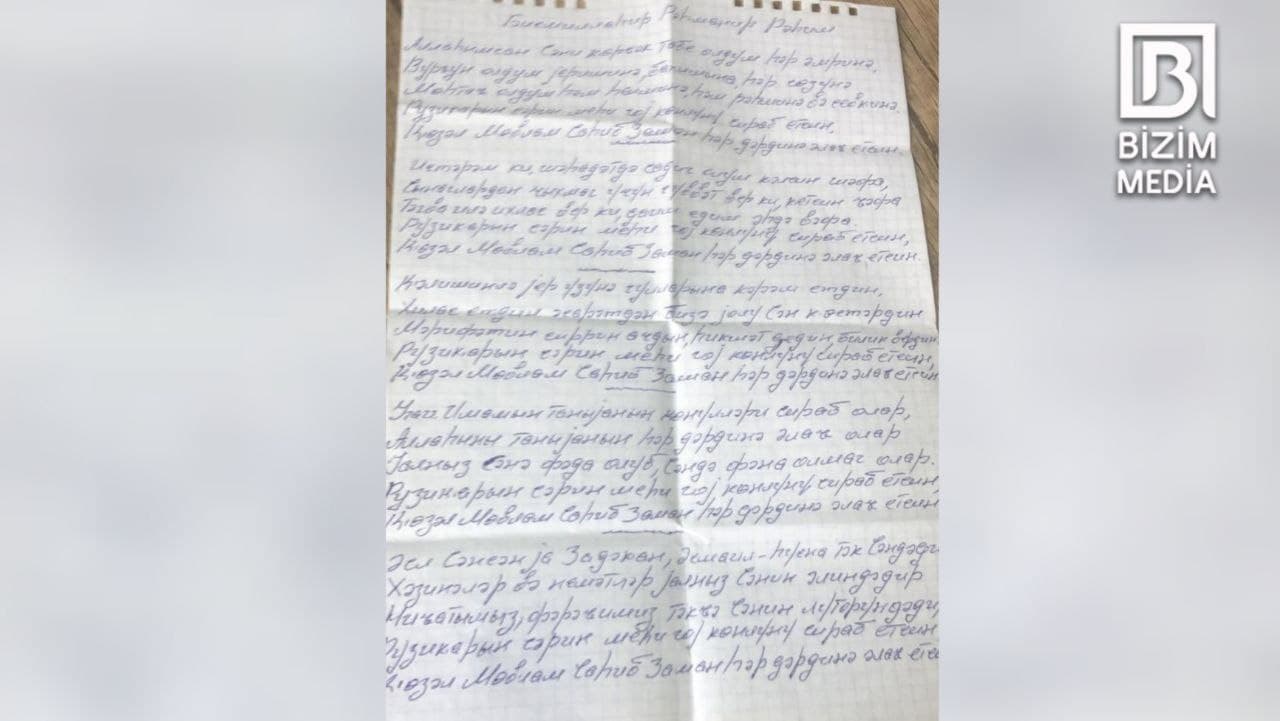 Бисмиллаһир Рәһманир Рәһим
Аллаһымсан Сәни көрҹәк табе олдум һәр әмринә,
Вурғун олдум јеришинә, бахышына, һәр сөзүнә
Мөһтаҹ олдум һәм һәлминә, һәм рәһминә вә севкинә.
Рузикарын сәрин меһи гој көнлүнү сираб етсин,
Ҝөзәл Мөвлам Саһиб Заман һәр дәрдинә әлаҹ етсин.
Истәрәм ки, шәһадәтдә садиг олум кәлсин шәфа,
Сынаглардан чыхмаг үчүн гүввәт вер ки, кетсин ҹәфа
Тәгва илә ихлас вер ки, даим едим әһдә вәфа.
Рузикарын сәрин меһи гој көнлүнү сираб етсин,
Ҝөзәл Мөвлам Саһиб Заман һәр дәрдинә әлаҹ етсин.
Кәлишинлә јер үзүнә гулларына кәрәм етдин,
Хилас етдин әсарәтдән бизә јолу Сән көстәрдин
Мәрифәтин сиррин ачдын, һикмәт дедин билик вердин
Рузикарын сәрин меһи гој көнлүнү сираб етсин,
Ҝөзәл Мөвлам Саһиб Заман һәр дәрдинә әлаҹ етсин
Имамын таныјанын көнүлләри сираб олар,
Аллаһыны таныјанын һәр дәрдинә әлаҹ олар
Јалныз Сәнә фәда олуб, Сәндә фәна олмаг олар.
Рузикарын сәрин меһи гој көнлүнү сираб етсин,
Ҝөзәл Мөвлам Саһиб Заман һәр дәрдинә әлаҹ етсин
Әсл Сәнсән ја Задәкан, Әсмаил-һүсна тәк Сәндәдир
Хәзинәләр вә немәтләр јалныз Сәнин әлиндәдир
Ниҹатымыз, фәрәҹимиз тәкҹә Сәнин лүтфүндәди,
Рузикарын сәрин меһи гој көнлүнү сираб етсин
Ҝөзәл Мөвлам Саһиб Заман һәр дәрдинә әлаҹ етсин
BİZİM
MEDİA